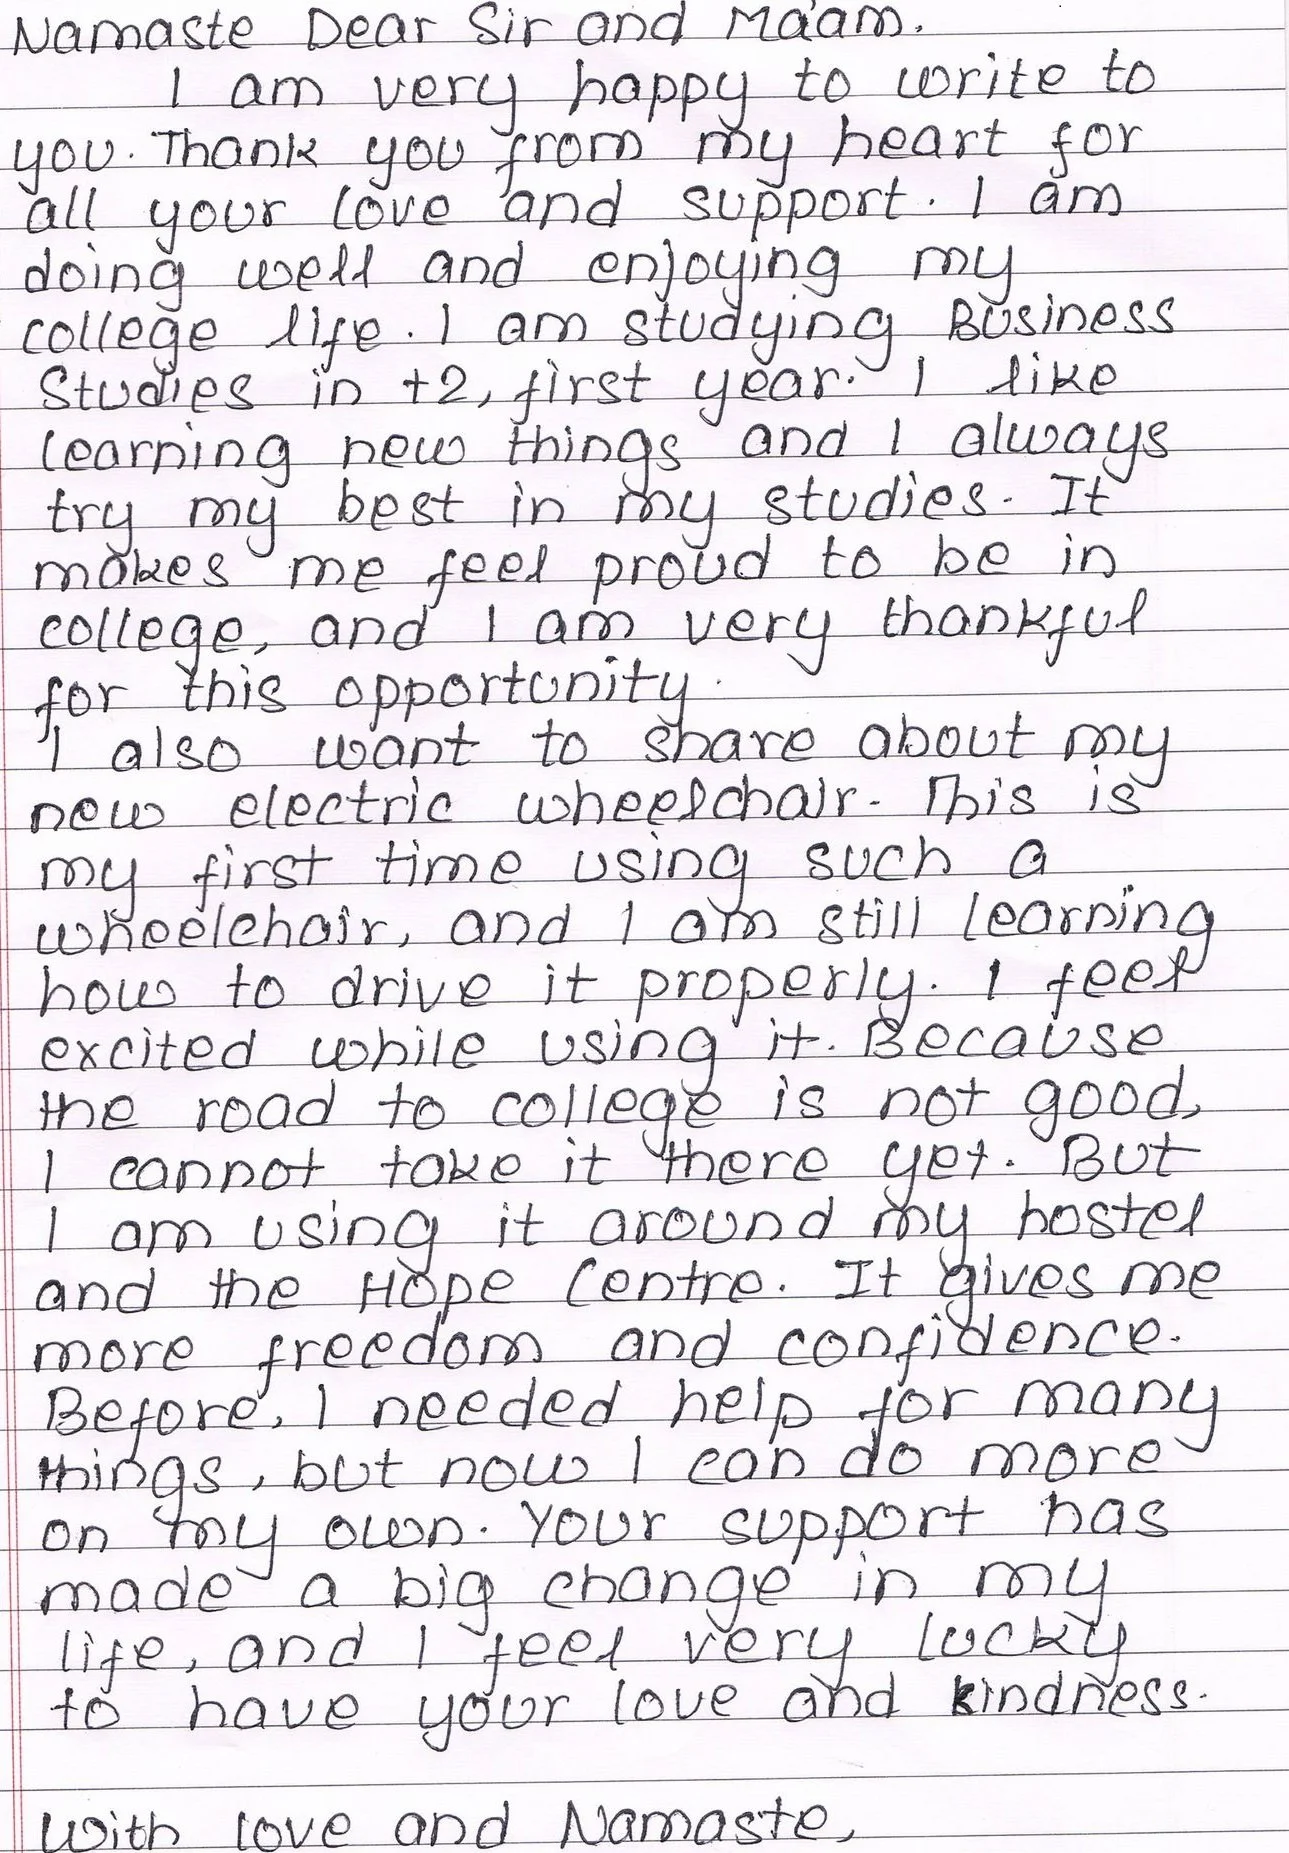 Namaste Dear Sir and Ma'am.
I am very happy to write to
you. Thank you from my heart for
all your love and support. I am
doing well and enjoying my
college life. I am studying Business
Studies in +2, first year. I like
learning new things and I always
try my best in my studies. It
makes me feel proud to be in
college, and I am very thankful
for this opportunity.
I also want to share about my
new electric wheelchair. This is
my first time using such a
wheelchair, and I am still learning
how to drive it properly. I feel
excited while using it. Because
the road to college is not good,
I cannot take it there yet. But
I am using it around my hostel
and the Hope Centre. It gives me
more freedom and confidence.
Before, I needed help for many
things, but now I can do more
on my own. Your support has
made a big change in my
life, and I feel very lucky
to have your love and kindness.
With love and Namaste,